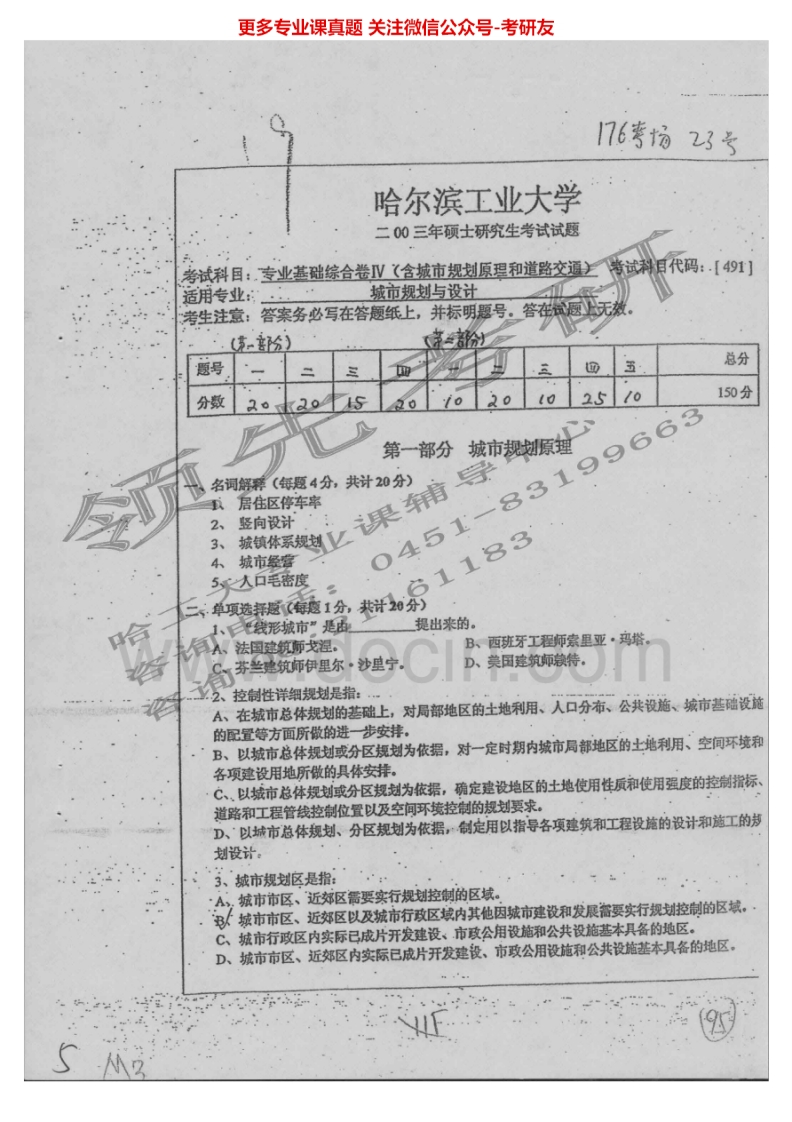 更多专业课真题 关注微信公众号-考研友
176考场 23号
哈尔滨工业大学
二00三年硕士研究生考试试题
考试科目：专业基础综合卷Ⅳ（含城市规划原理和道路交通） 考试科目代码：[491]
适用专业： 城市规划与设计
考生注意：答案务必写在答题纸上，并标明题号。答在试题上无效。
(第一部分) (第二部分)
题号 一 二 三 四 一 二 三 四 五 总分
分数 20 20 15 20 10 20 10 25 10 150分
第一部分 城市规划原理
一、名词解释（每题4分，共计20分）
1、 居住区停车率
2、 竖向设计
3、 城镇体系规划
4、 城市经营
5、 人口毛密度
二、单项选择题（每题1分，共计20分）
1、“线形城市”是由________提出来的。
A、法国建筑师戈涅。 B、西班牙工程师索里亚·玛塔。
C、芬兰建筑师伊里尔·沙里宁。 D、美国建筑师赖特。
2、控制性详细规划是指：
A、在城市总体规划的基础上，对局部地区的土地利用、人口分布、公共设施、城市基础设施
的配置等方面所做的进一步安排。
B、以城市总体规划或分区规划为依据，对一定时期内城市局部地区的土地利用、空间环境和
各项建设用地所做的具体安排。
C、以城市总体规划或分区规划为依据，确定建设地区的土地使用性质和使用强度的控制指标、
道路和工程管线控制位置以及空间环境控制的规划要求。
D、以城市总体规划、分区规划为依据，制定用以指导各项建筑和工程设施的设计和施工的规
划设计。
3、城市规划区是指：
A、城市市区、近郊区需要实行规划控制的区域。
B、城市市区、近郊区以及城市行政区域内其他因城市建设和发展需要实行规划控制的区域。
C、城市行政区内实际已成片开发建设、市政公用设施和公共设施基本具备的地区。
D、城市市区、近郊区内实际已成片开发建设、市政公用设施和公共设施基本具备的地区。
领先考研
哈工大专业课辅导中心
咨询电话：0451-83199663
www.docin.com
95
5 M3